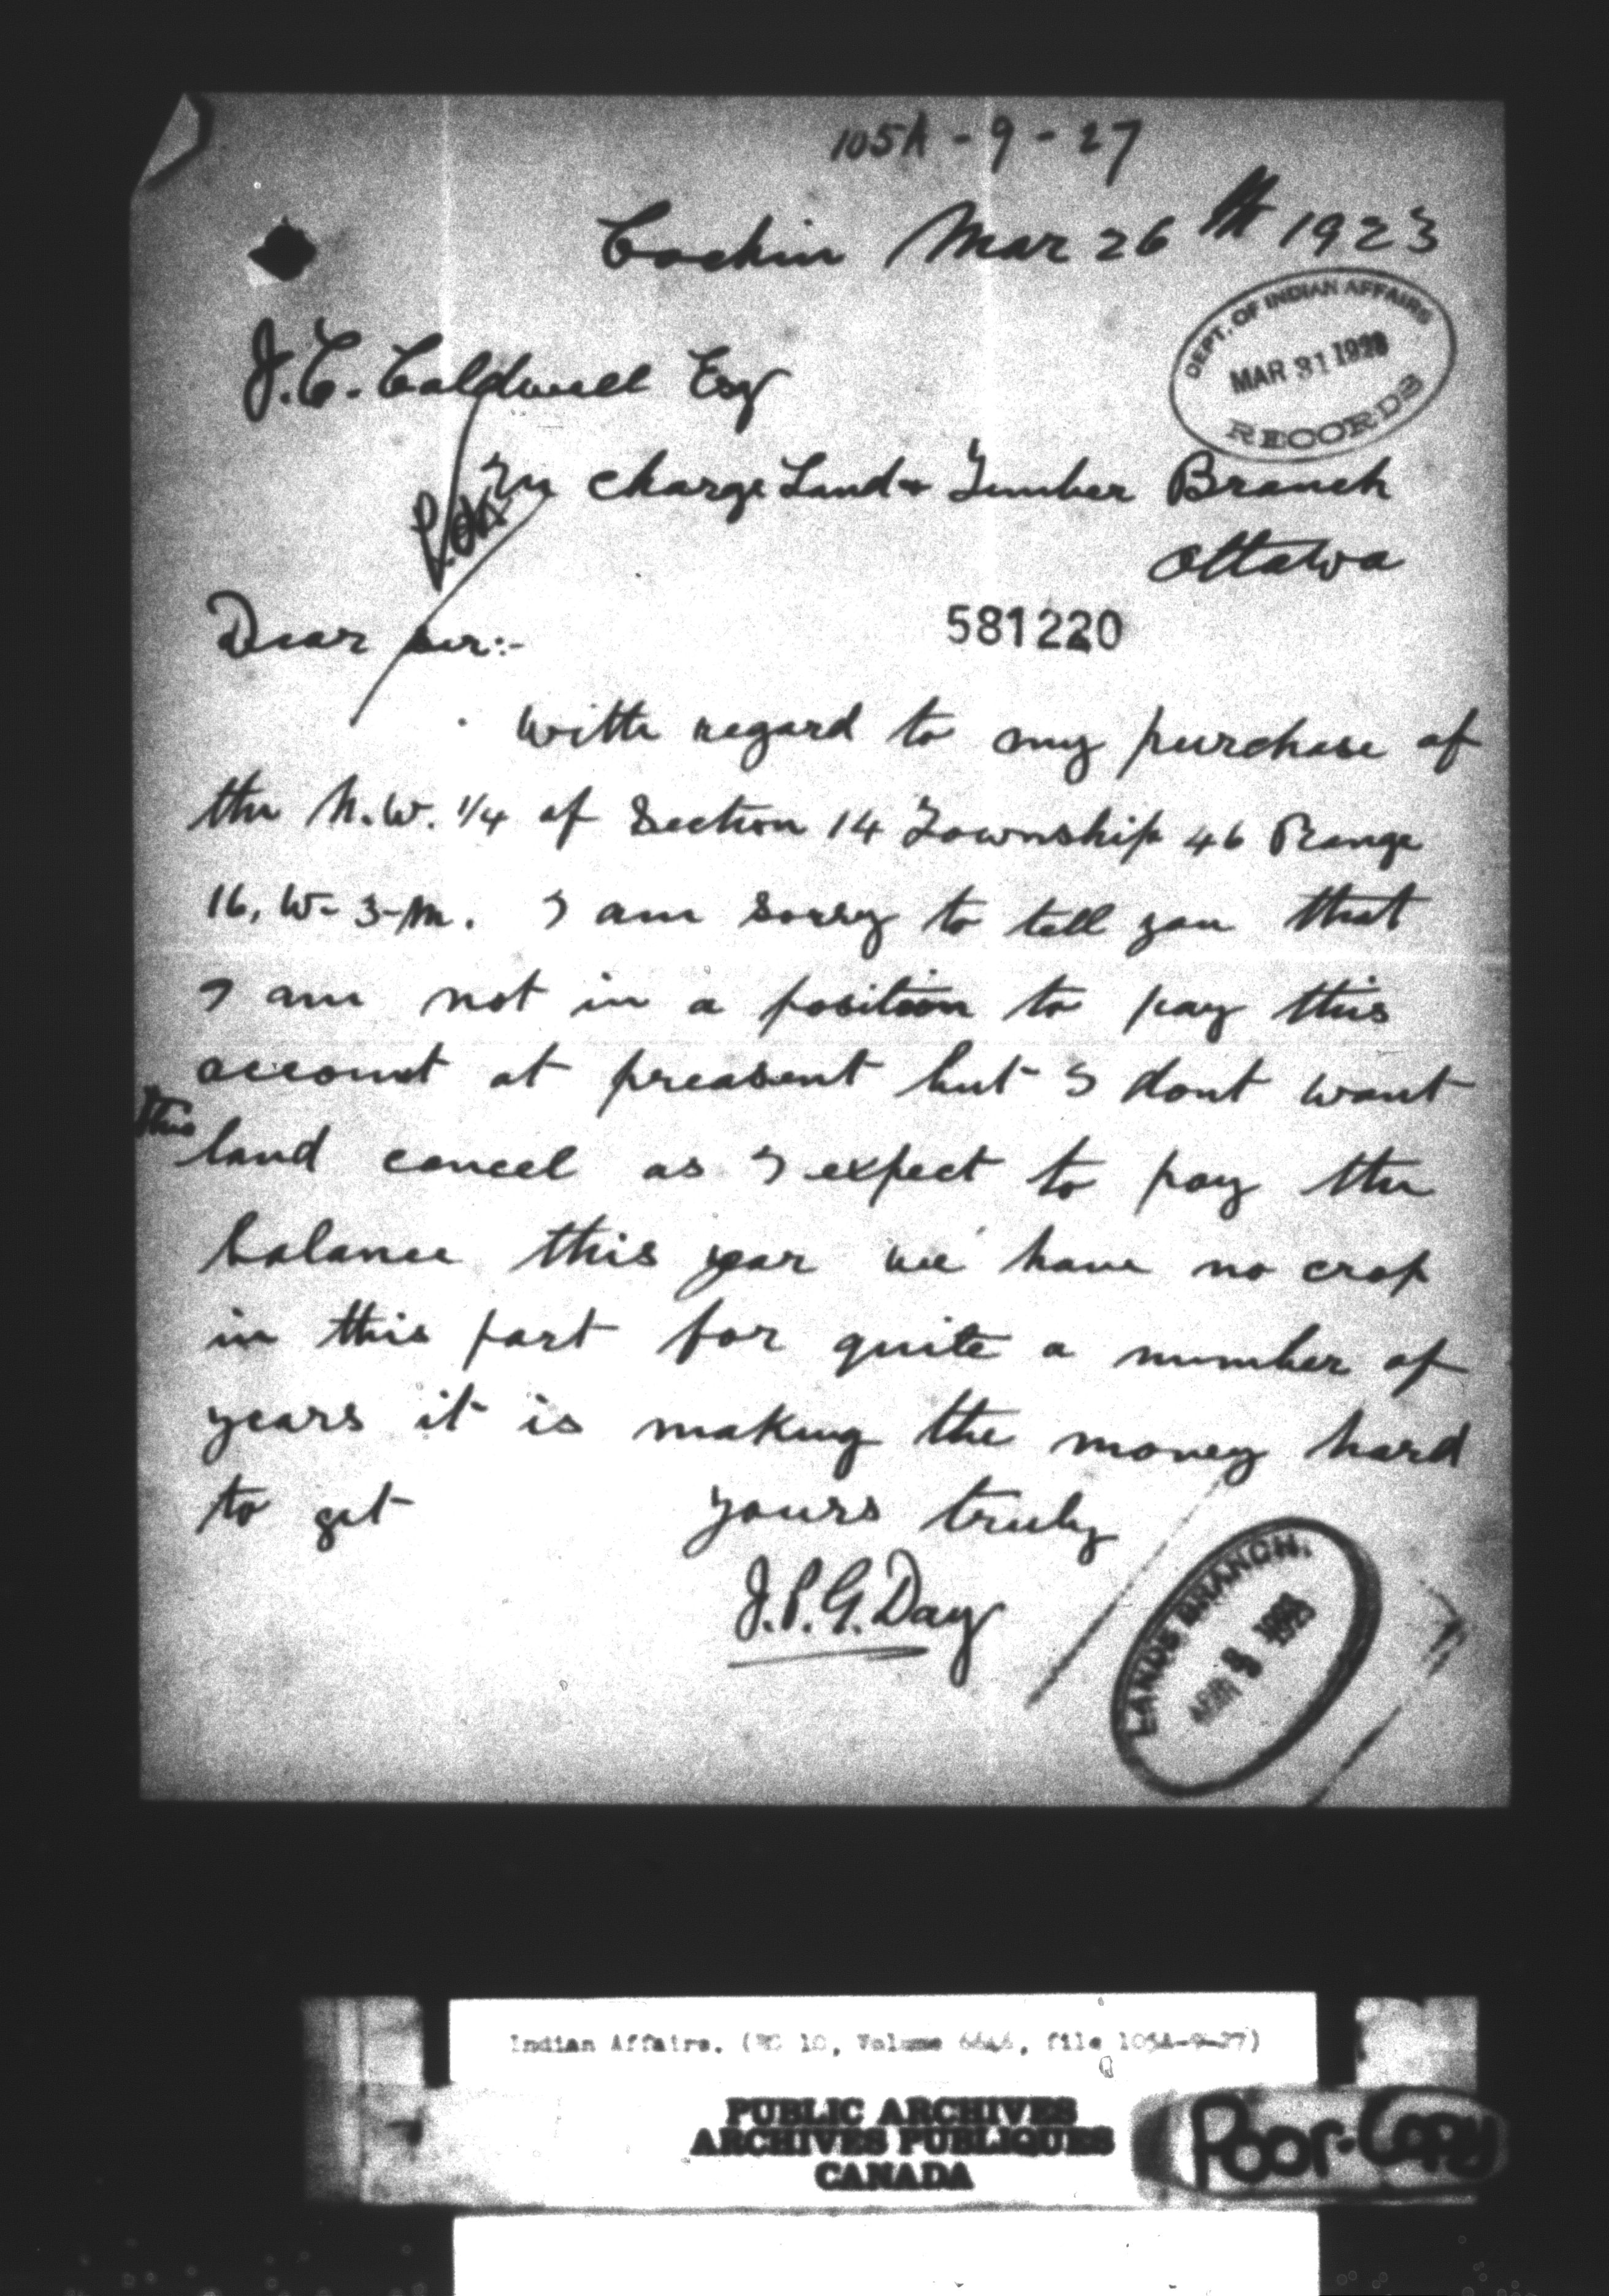 105A-9-27
Cochin Mar 26th 1923
DEPT. OF INDIAN AFFAIRS
MAR 31 1923
RECORDS
J.C. Caldwell Esq
In charge Land & Timber Branch
Ottawa
581220
Dear sir:-
With regard to my purchase of
the N.W. 1/4 of Section 14 Township 46 Range
16, W-3-M. I am sorry to tell you that
I am not in a position to pay this
account at preasent but I dont want
this land cancel as I expect to pay the
balance this year we have no crop
in this part for quite a number of
years it is making the money hard
to get
yours truly
J.P.G. Day
LANDS BRANCH.
1923
Indian Affairs. (RG 10, Volume 6646, file 105A-9-27)
PUBLIC ARCHIVES
ARCHIVES PUBLIQUES
CANADA
Poor-Copy